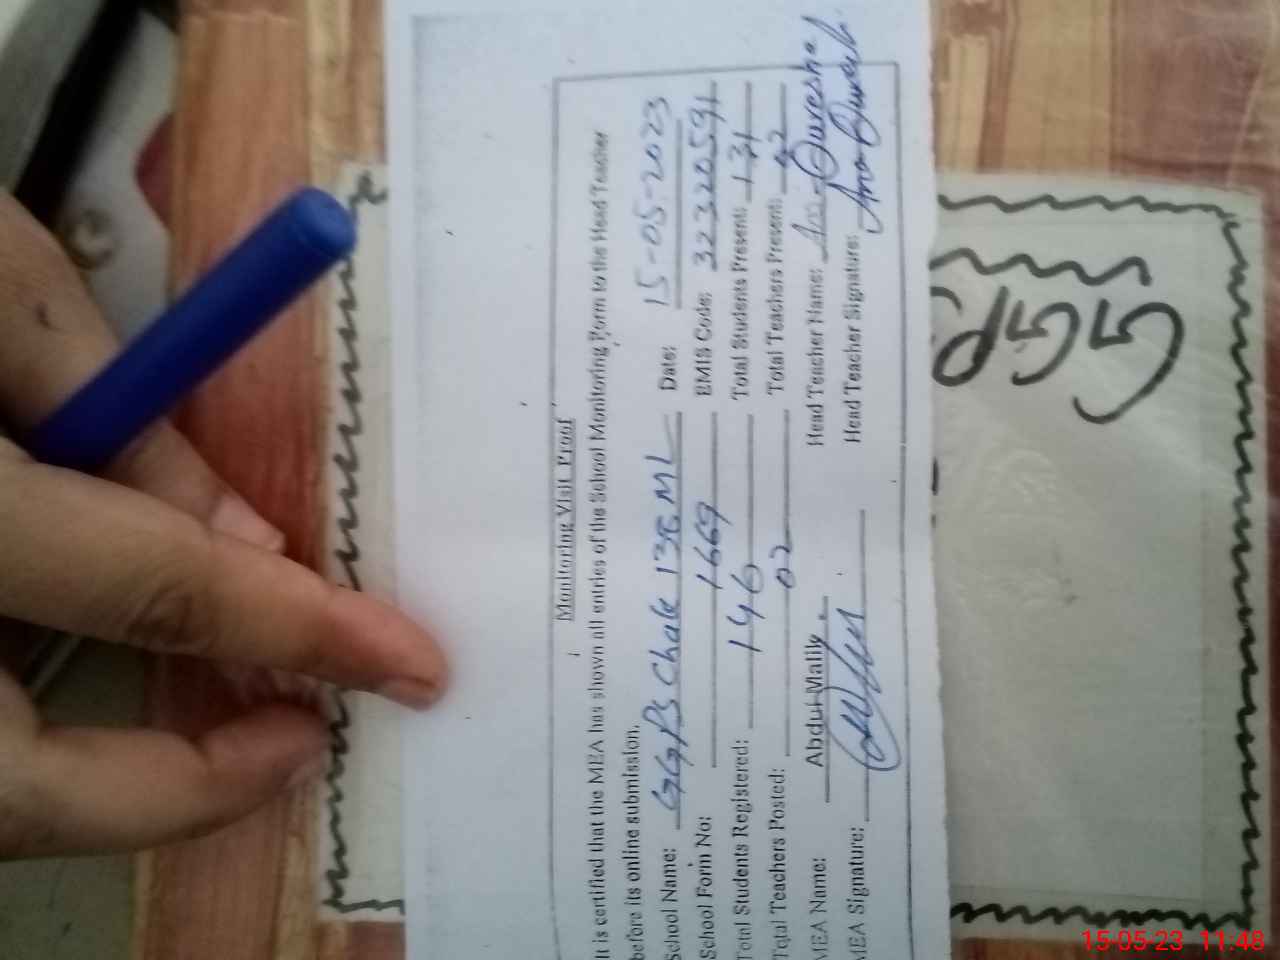 Monitoring Visit Proof
It is certified that the MEA has shown all entries of the School Monitoring Form to the Head Teacher
before its online submission.
School Name: GGPS Chak 138 ML Date: 15-05-2023
School Form No: 1669 EMIS Code: 32320591
Total Students Registered: 146 Total Students Present: 131
Total Teachers Posted: 02 Total Teachers Present: 02
MEA Name: Abdul Malik Head Teacher Name: Qureshi
MEA Signature: Head Teacher Signature:
GGP
15-05-23 11:48